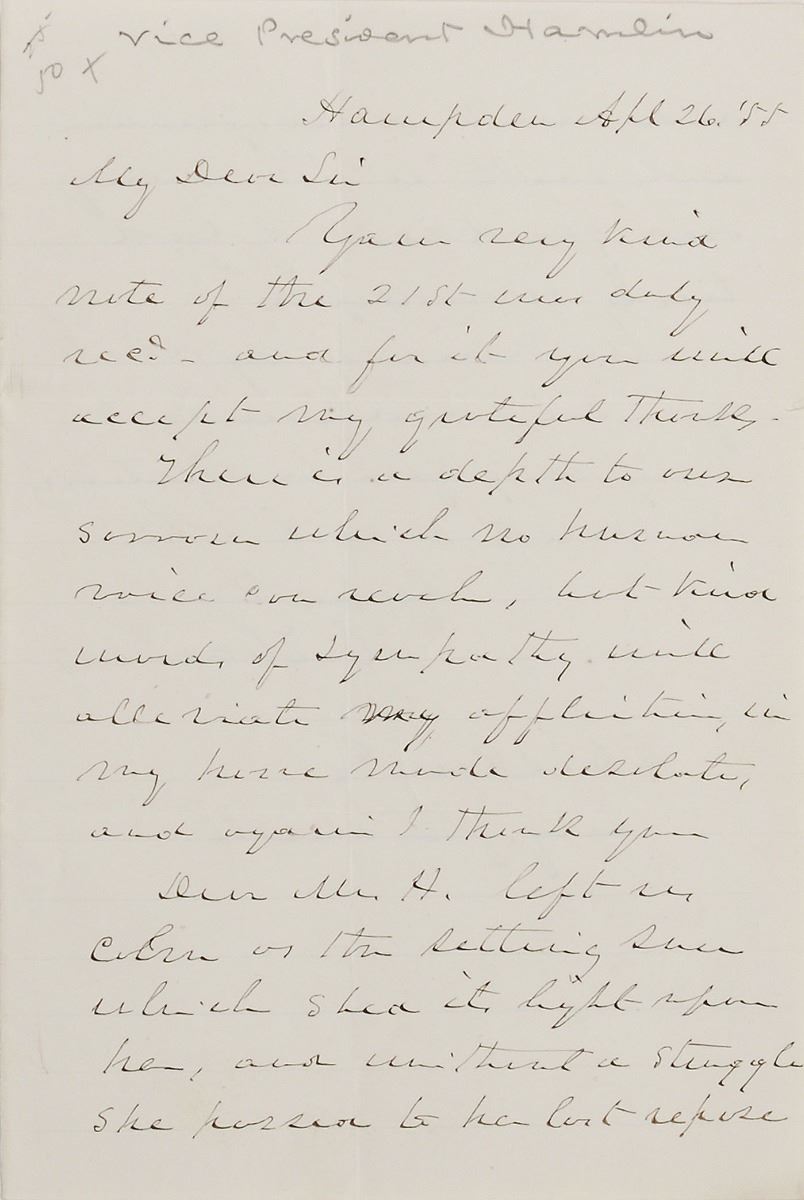 Vice President Hamlin
50 X
Hampden Apl 26. '55
My Dear Sir
Your very kind
note of the 21st was duly
recd - and for it you will
accept my grateful thanks.
There is a depth to our
sorrow which no human
voice can reach, but kind
words of sympathy will
alleviate my affliction, in
my home made desolate,
and again I thank you
Dear Mrs. H. left us
calm as the setting sun
which shed its light upon
her, and without a struggle
she passed to her last repose